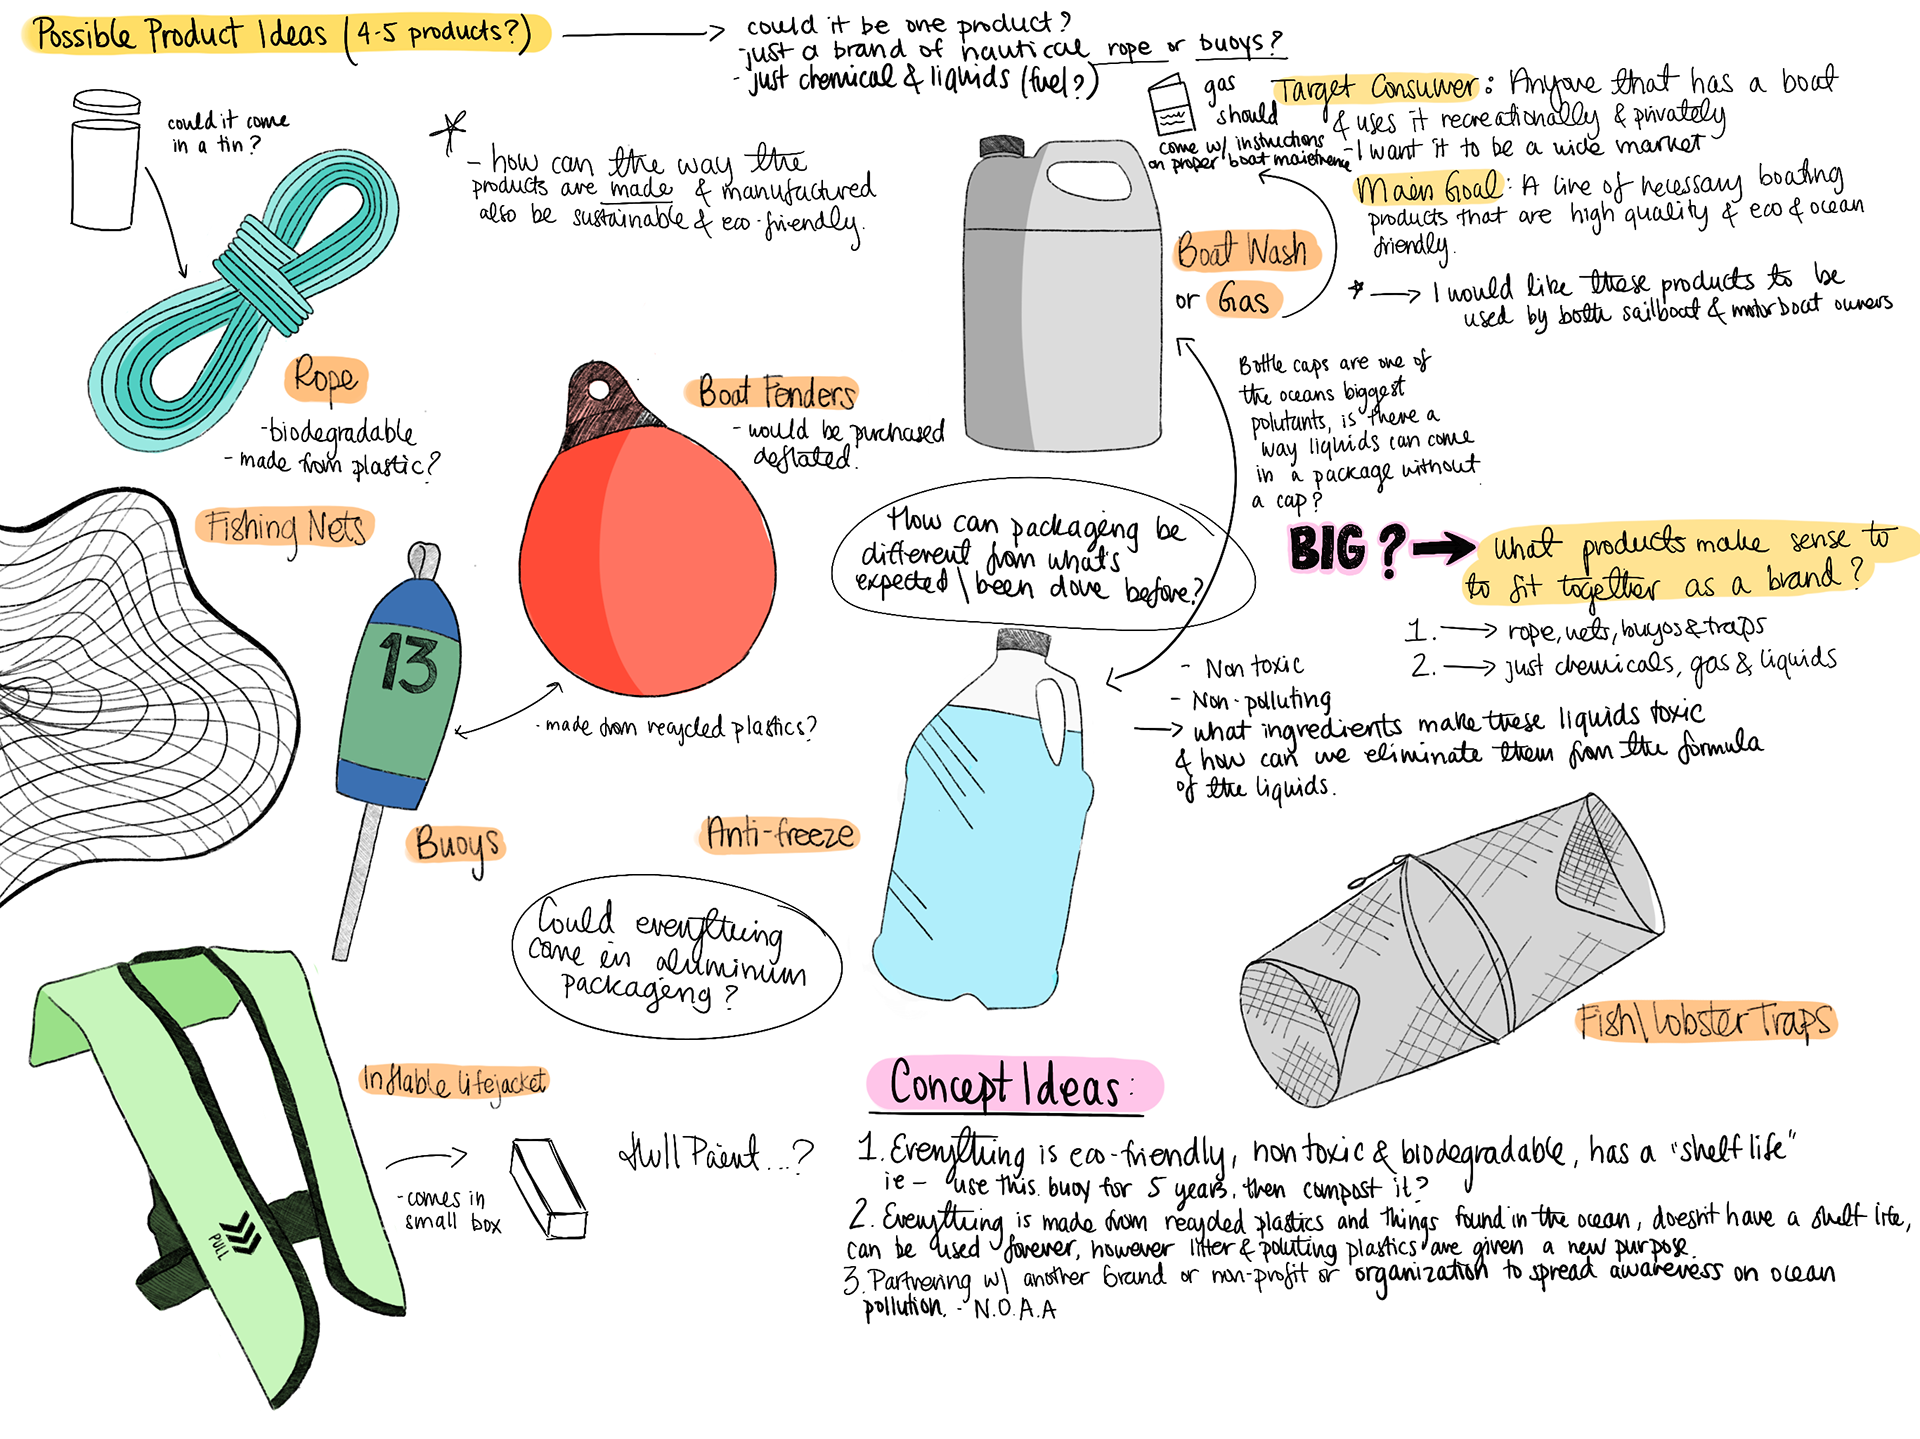 Possible Product Ideas (4-5 products?)
could it be one product?
-just a brand of nautical rope or buoys?
- just chemical & liquids (fuel?)
could it come
in a tin?
- how can the way the
products are made & manufactured
also be sustainable & eco-friendly.
gas
should
come w/ instructions
on proper boat maietnence
Target Consumer: Anyone that has a boat
& uses it recreationally & privately
- I want it to be a wide market
Main Goal: A line of necessary boating
products that are high quality & eco & ocean
friendly.
I would like these products to be
used by both sailboat & motorboat owners
Boat Wash
or Gas
Rope
-biodegradable
- made from plastic?
Boat Fenders
- would be purchased
deflated.
Bottle caps are one of
the oceans biggest
polutants, is there a
way liquids can come
in a package without
a cap?
Fishing Nets
How can packageing be
different from what's
expected \ been done before?
BIG ? What products make sense to
to fit together as a brand?
1. rope, nets, buyos & traps
2. just chemicals, gas & liquids
13
- made from recycled plastics?
- Non toxic
- Non-polluting
what ingredients make these liquids toxic
& how can we eliminate them from the formula
of the liquids.
Buoys
Anti-freeze
Could everything
come in aluminum
packageng?
Fish\Lobster Traps
Inflable Lifejacket
PULL
-comes in
small box
Hull Paint...?
Concept Ideas:
1. Everything is eco-friendly, non toxic & biodegradable, has a "shelf life"
ie - use this buoy for 5 years, then compost it?
2. Everything is made from recycled plastics and things found in the ocean, doesn't have a shelf life,
can be used forever, however litter & poluting plastics are given a new purpose.
3. Partnering w\ another brand or non-profit or organization to spread awareness on ocean
pollution. - N.O.A.A